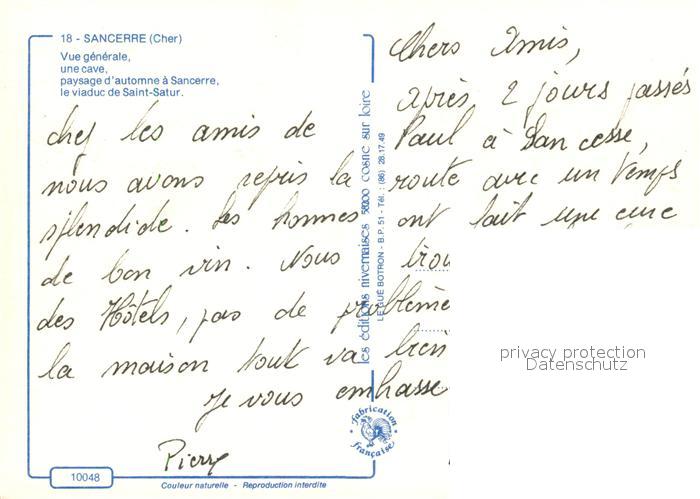 18 - SANCERRE (Cher)
Vue générale,
une cave,
paysage d'automne à Sancerre,
le viaduc de Saint-Satur.
Chers Amis,
après 2 jours passés
chez les amis de Paul à Sancesse,
nous avons repris la route avec un temps
splendide. Les hommes ont fait une cure
de bon vin. Nous
des Hôtels, pas de problème
la maison tout va bien
Je vous embrasse
Pierre
les éditions nivernaises 58200 cosne sur loire
LE GUÉ BOTRON - B.P. 51 - Tél. : (86) 28.17.49
Fabrication Française
10048
Couleur naturelle - Reproduction interdite
privacy protection
Datenschutz